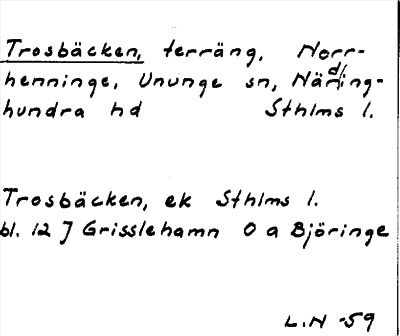 Trosbäcken, terräng, Norr-
henninge, Ununge sn, Närding-
hundra hd Sthlms l.
Trosbäcken, ek Sthlms l.
bl. 12 J Grisslehamn O a Björinge
L.N -59